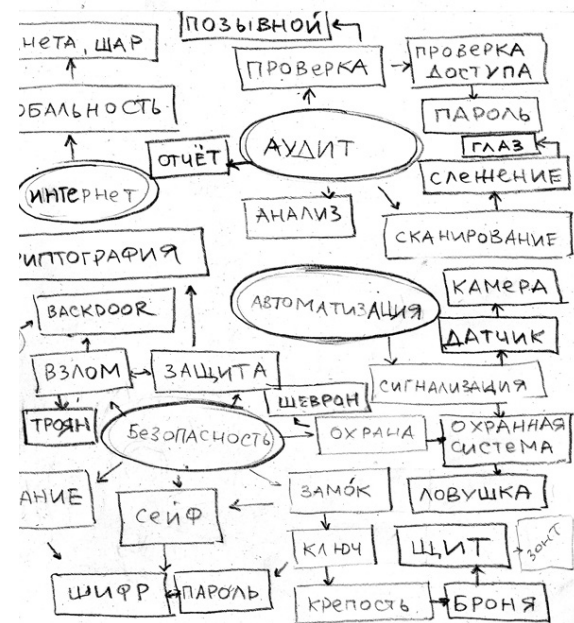 ПОЗЫВНОЙ
НЕТА, ШАР
ПРОВЕРКА
ПРОВЕРКА
ДОСТУПА
ОБАЛЬНОСТЬ
ПАРОЛЬ
АУДИТ
ГЛАЗ
ОТЧЁТ
СЛЕЖЕНИЕ
ИНТЕРНЕТ
АНАЛИЗ
СКАНИРОВАНИЕ
РИПТОГРАФИЯ
КАМЕРА
АВТОМАТИЗАЦИЯ
BACKDOOR
ДАТЧИК
ВЗЛОМ
ЗАЩИТА
СИГНАЛИЗАЦИЯ
ШЕВРОН
ТРОЯН
БЕЗОПАСНОСТЬ
ОХРАНА
ОХРАННАЯ
СИСТЕМА
АНИЕ
СЕЙФ
ЗАМОК
ЛОВУШКА
КЛЮЧ
ЩИТ
ЗОНТ
ШИФР
ПАРОЛЬ
КРЕПОСТЬ
БРОНЯ